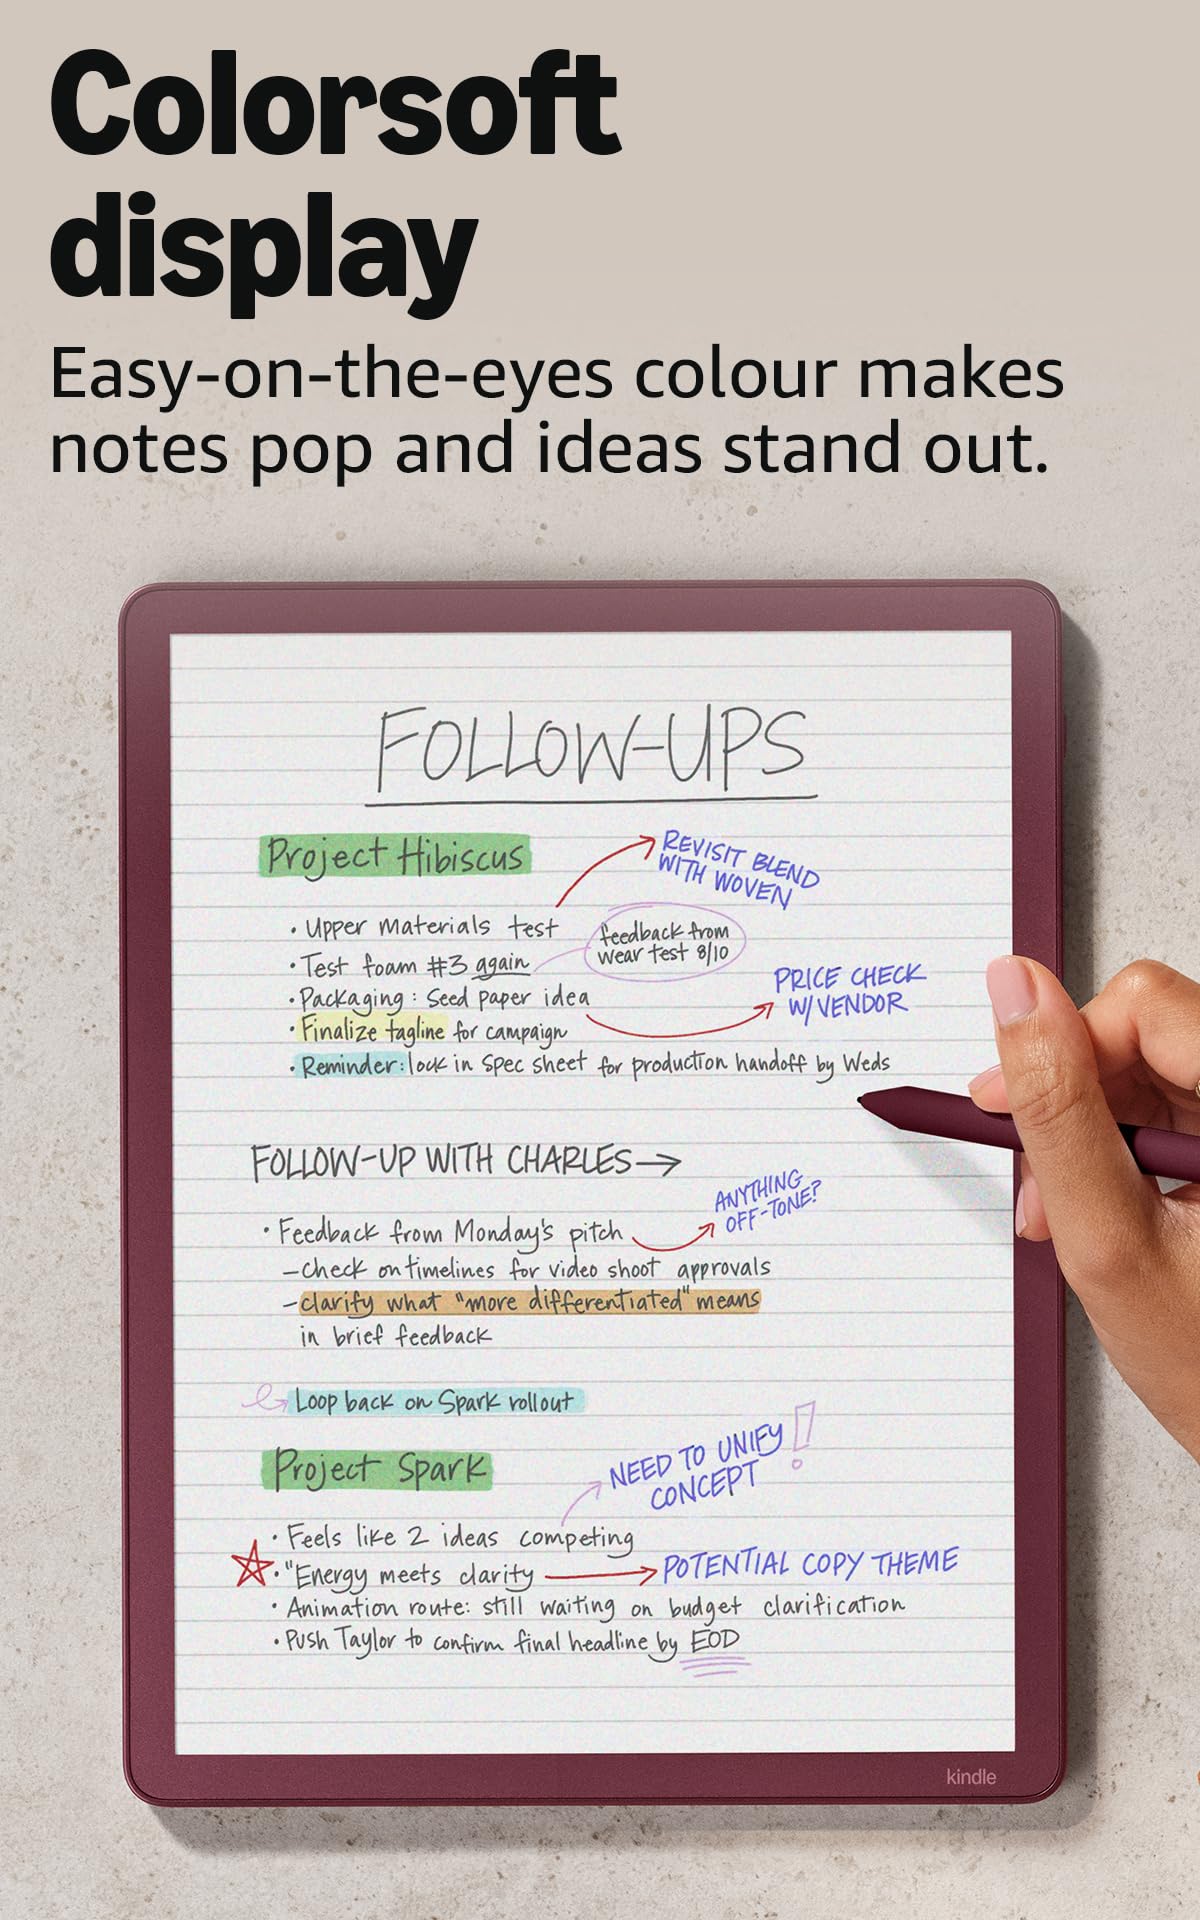 Colorsoft
display
Easy-on-the-eyes colour makes
notes pop and ideas stand out.
FOLLOW-UPS
Project Hibiscus
REVISIT BLEND
WITH WOVEN
· Upper materials test
· Test foam #3 again
feedback from
wear test 8/10
· Packaging: Seed paper idea
PRICE CHECK
W/VENDOR
· Finalize tagline for campaign
· Reminder: lock in spec sheet for production handoff by Weds
FOLLOW-UP WITH CHARLES→
· Feedback from Monday's pitch
ANYTHING
OFF-TONE?
– check on timelines for video shoot approvals
– clarify what "more differentiated" means
in brief feedback
Loop back on Spark rollout
Project Spark
NEED TO UNIFY!
CONCEPT
· Feels like 2 ideas competing
· "Energy meets clarity → POTENTIAL COPY THEME
· Animation route: still waiting on budget clarification
· Push Taylor to confirm final headline by EOD
kindle